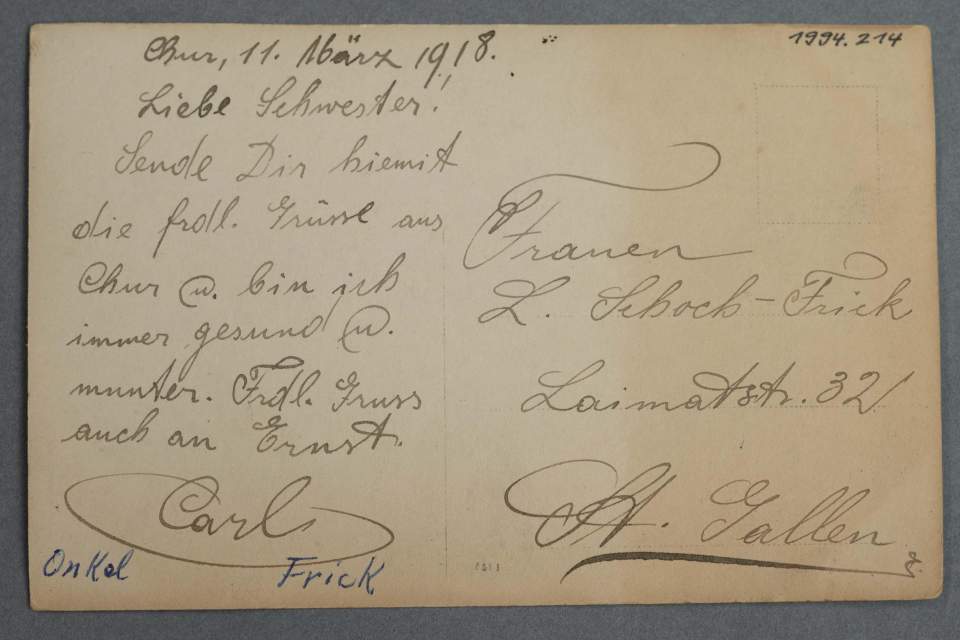 1994.214
Chur, 11. März 1918.
Liebe Schwester!
Sende Dir hiemit
die frdl. Grüsse aus
Chur u. bin ich
immer gesund u.
munter. Frdl. Gruss
auch an Ernst.
Carl
Onkel Frick
Frauen
L. Schoch-Frick
Laimatstr. 32/
St. Gallen